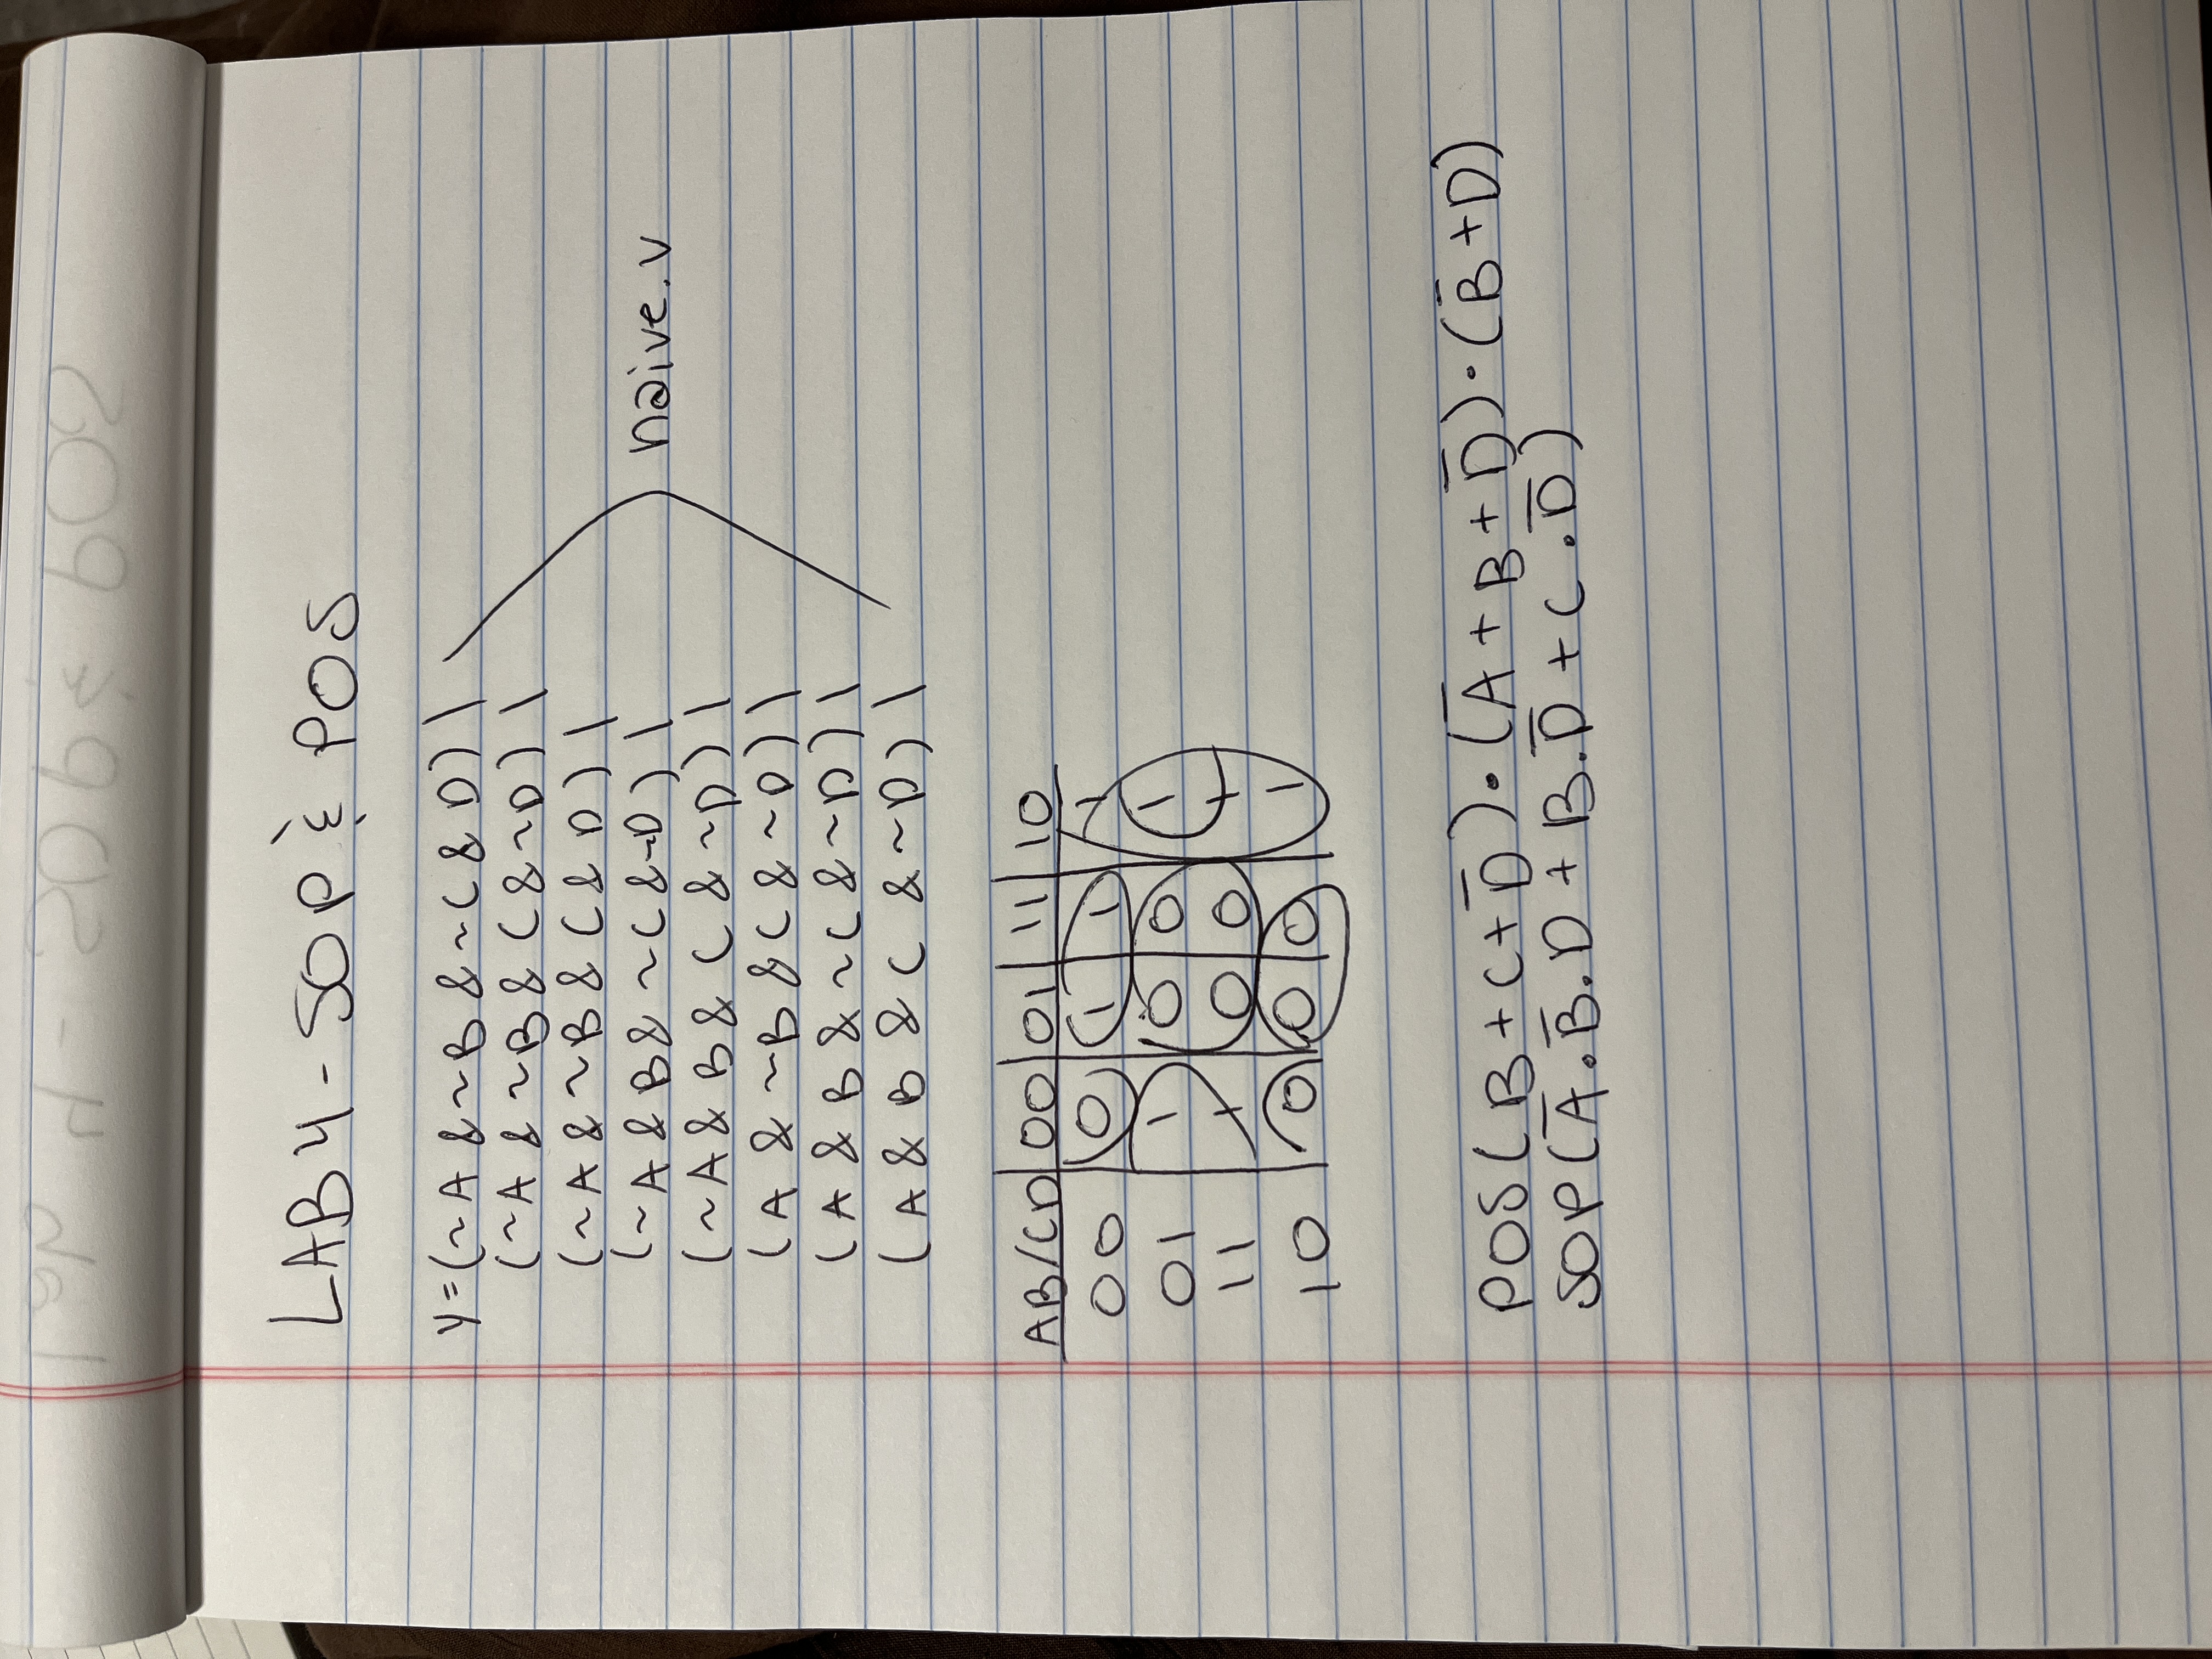 LAB 4 - SOP & POS
Y=(~A & ~B & ~C & D) |
(~A & ~B & C & ~D) |
(~A & ~B & C & D) |
(~A & B & ~C & ~D) |
(~A & B & C & ~D) |
(A & ~B & C & ~D) |
(A & B & ~C & ~D) |
(A & B & C & ~D) |
naive.v
AB/CD 00 01 11 10
00 0 1 1 1
01 1 0 0 1
11 1 0 0 1
10 0 0 0 1
POS(B+C+D̅)·(A̅+B+D̅)·(B̅+D)
SOP(A̅.B̅.D+B.D̅+C.D̅)